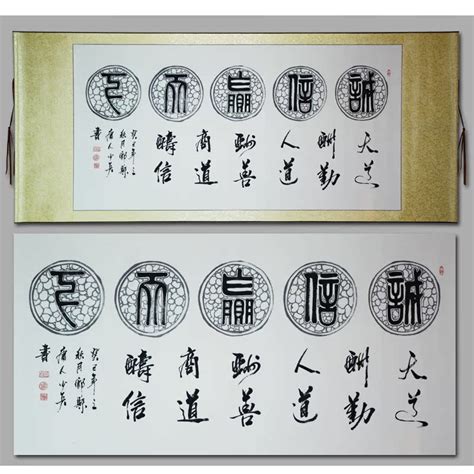 誠信贏天下
天道
酬勤
人道
酬善
商道
醻信
癸巳年之
秋月
書
誠信贏天下
天道
酬勤
人道
酬善
商道
醻信
癸巳年之
秋月
書